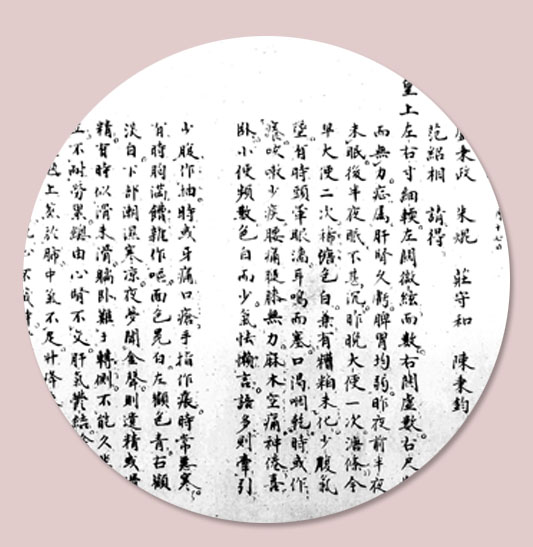 十七
秉政 朱焜 莊守和 陳秉鈞
范紹相 請得
皇上左右寸細軟左關微絃而數右關虛數右尺
而無力症屬肝腎久虧脾胃均弱昨夜前半夜
未眠後半夜眠不甚沉昨晚大便一次溏條今
早大便二次稀溏色白兼有糟粕未化少腹氣
墜有時頭暈眼濇耳鳴而塞口渴咽乾時或作
癢吹嗽少痰腰痛腿膝無力麻木空痛神倦喜
臥小便頻數色白而少氣怯懶言語多則牽引
少腹作抽時或牙痛口瘩手指作痕時常惡寒
有時胸滿饋雜作嘔面色晄白左顴色青右顴
淡白下部潮濕寒涼夜夢聞金聲則遺精或滑
精有時似滑未滑臥難于轉側不能久坐
立不耐勞累總由心腎不交肝氣鬱結
上蒸於肺中氣不足升降